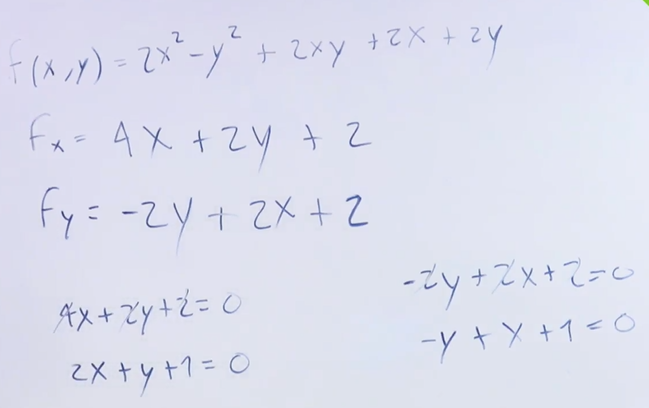 f(x,y) = 2x² - y² + 2xy + 2x + 2y
fx = 4x + 2y + 2
fy = -2y + 2x + 2
4x + 2y + 2 = 0
2x + y + 1 = 0
-2y + 2x + 2 = 0
-y + x + 1 = 0